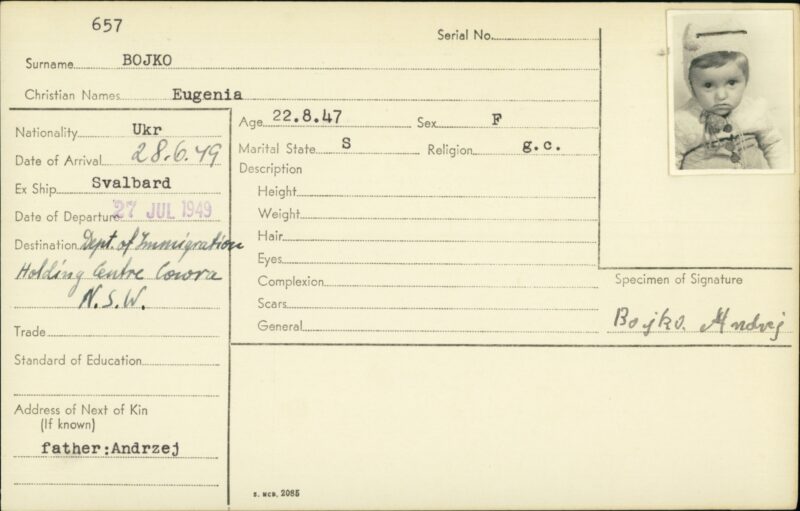 657
Serial No.
Surname BOJKO
Christian Names Eugenia
Nationality Ukr
Date of Arrival 28.6.49
Ex Ship Svalbard
Date of Departure 27 JUL 1949
Destination Dept. of Immigration
Holding Centre Cowra
N.S.W.
Trade
Standard of Education
Address of Next of Kin
(If known)
father:Andrzej
Age 22.8.47 Sex F
Marital State S Religion g.c.
Description
Height
Weight
Hair
Eyes
Complexion
Scars
General
Specimen of Signature
Bojko Andrej
S. MCD. 2085